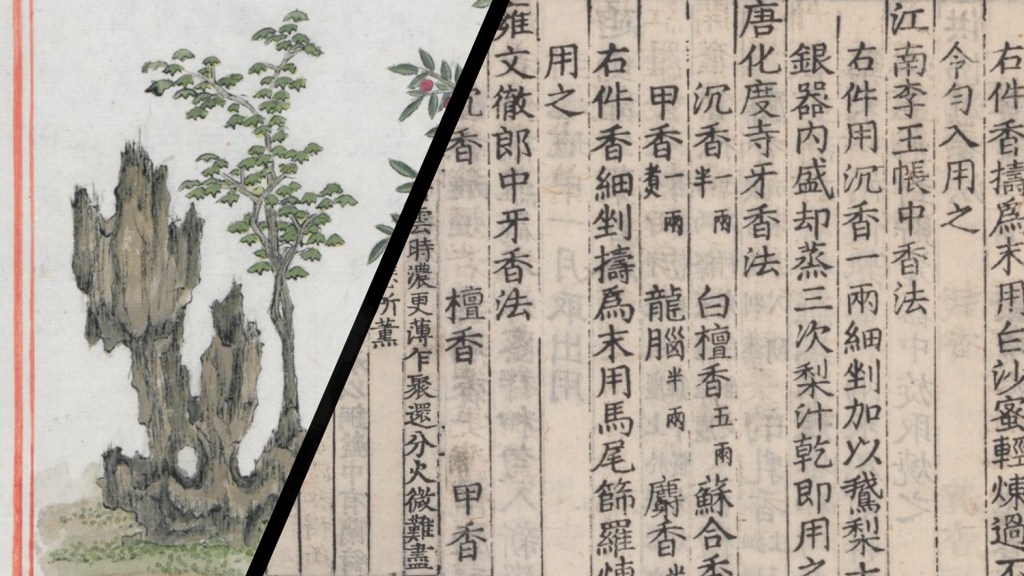 右件香擣爲末用白沙蜜輕煉過不
令勻入用之
江南李王帳中香法
右件用沉香一兩細剉加以鵝梨十
銀器内盛却蒸三次梨汁乾即用之
唐化度寺牙香法
沉香一兩半 白檀香五兩 蘇合香
甲香一兩煑 龍腦半兩 麝香半
右件香細剉擣爲末用馬尾篩羅煉
用之
雍文徹郎中牙香法
沉香 檀香 甲香
雲時濃更薄乍聚還分火微難盡
所薫